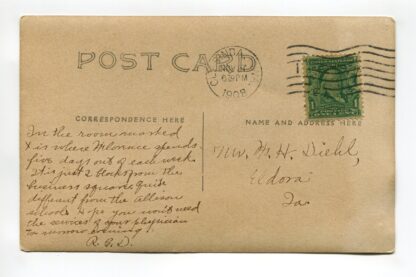 POST CARD
CLARINDA
6 30 PM
1908
CORRESPONDENCE HERE
NAME AND ADDRESS HERE
In the room marked
X is where Florence spends
five days out of each week.
It is just 2 blocks from the
business square, quite
different from the Allison
school. Hope you won't need
the services of your Physician
to morrow evening.
R. G. D.
Mr. M. H. Diehl,
Eldora
Ia.